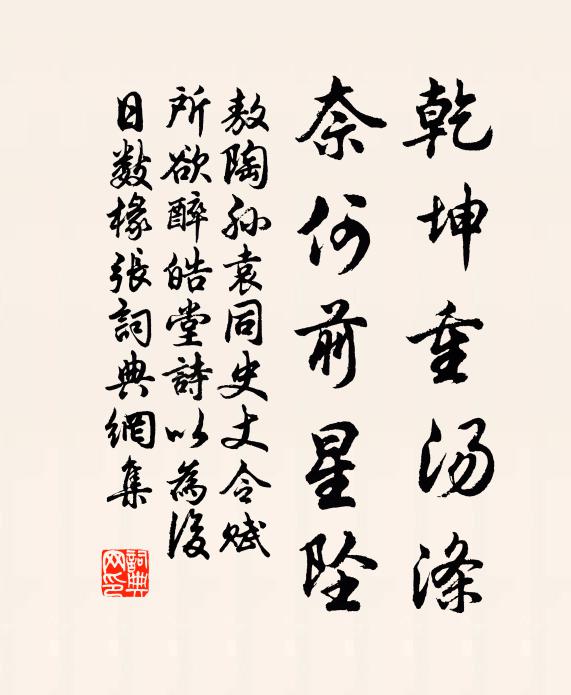 乾坤重汤滌
奈何前星坠
敖陶孙袁同史丈令赋
所欲醉皓堂詩以為後
日数椽張詞典網集
詞典网印